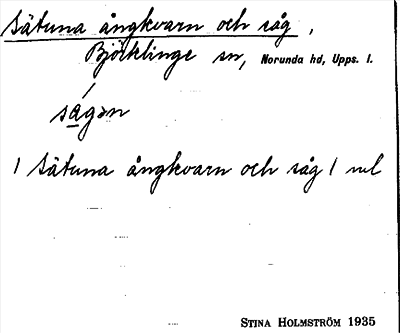 Sätuna ångkvarn och såg,
Björklinge sn, Norunda hd, Upps. l.
sagən
/ Sätuna ångkvarn och såg / rul
STINA HOLMSTRÖM 1935